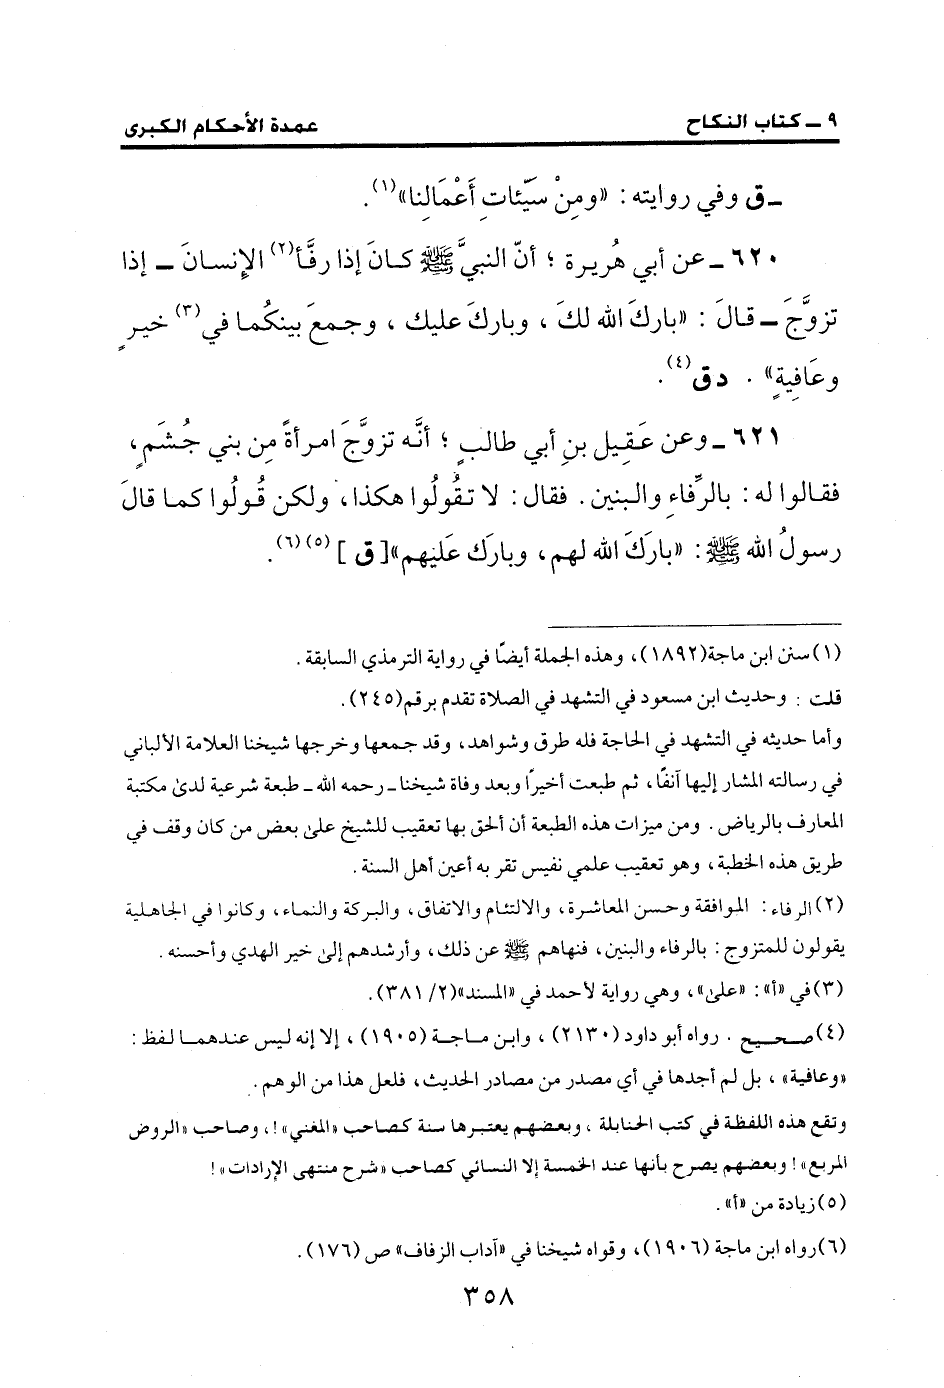 ٩ ــ كتاب النكاح
عمدة الأحكام الكبرى
ــ ق وفي روايته : «ومِنْ سَيّئاتِ أَعْمَالِنا»(١).
٦٢٠ ــ عن أبي هُريرة ؛ أنّ النبيَّ ﷺ كانَ إذا رفَّأ(٢) الإنسانَ ــ إذا
تزوَّجَ ــ قالَ : «باركَ الله لكَ ، وباركَ عليك ، وجمعَ بينكُما في(٣) خيرٍ
وعَافِيةٍ» . دق(٤).
٦٢١ ــ وعن عَقِيل بنِ أبي طالبٍ ؛ أنَّه تزوَّجَ امرأةً مِن بني جُشَمٍ،
فقالوا له : بالرِّفاءِ والبنين . فقال : لا تقُولُوا هكذا، ولكن قُولُوا كما قالَ
رسولُ الله ﷺ : «بارَكَ الله لهم، وبارَك عَليهم»[ ق ](٥)(٦).
(١) سنن ابن ماجة (١٨٩٢)، وهذه الجملة أيضًا في رواية الترمذي السابقة .
قلت : وحديث ابن مسعود في التشهد في الصلاة تقدم برقم (٢٤٥).
وأما حديثه في التشهد في الحاجة فله طرق وشواهد، وقد جمعها وخرجها شيخنا العلامة الألباني
في رسالته المشار إليها آنفًا، ثم طبعت أخيرًا وبعد وفاة شيخنا ـ رحمه الله ـ طبعة شرعية لدىٰ مكتبة
المعارف بالرياض . ومن ميزات هذه الطبعة أن ألحق بها تعقيب للشيخ علىٰ بعض من كان وقف في
طريق هذه الخطبة ، وهو تعقيب علمي نفيس تقر به أعين أهل السنة .
(٢) الرفاء : الموافقة وحسن المعاشرة، والالتئام والاتفاق، والبركة والنماء، وكانوا في الجاهلية
يقولون للمتزوج : بالرفاء والبنين، فنهاهم ﷺ عن ذلك، وأرشدهم إلىٰ خير الهدي وأحسنه .
(٣) في «أ» : «علىٰ» ، وهي رواية لأحمد في «المسند» (٢/ ٣٨١).
(٤) صحيح . رواه أبو داود (٢١٣٠) ، وابن ماجة (١٩٠٥) ، إلا إنه ليس عندهما لفظ :
«وعافية» ، بل لم أجدها في أي مصدر من مصادر الحديث، فلعل هذا من الوهم .
وتقع هذه اللفظة في كتب الحنابلة ، وبعضهم يعتبرها سنة كصاحب «المغني»!، وصاحب «الروض
المربع»! وبعضهم يصرح بأنها عند الخمسة إلا النسائي كصاحب «شرح منتهى الإرادات»!
(٥) زيادة من «أ» .
(٦) رواه ابن ماجة (١٩٠٦)، وقواه شيخنا في «آداب الزفاف» ص (١٧٦).
٣٥٨